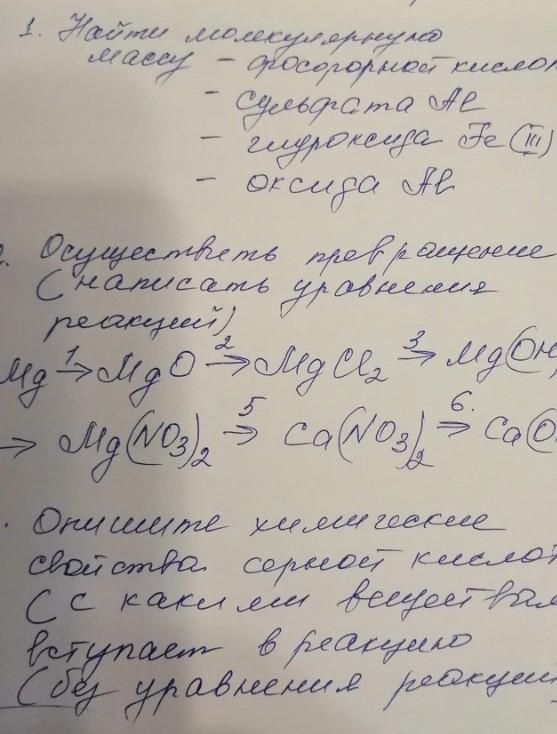 1. Найти молекулярную
массу – фосфорной кислот
– сульфата Al
– гидроксида Fe (III)
– оксида Al
2. Осуществить превращение
(написать уравнения
реакций)
Mg 1→ MgO 2→ MgCl₂ 3→ Mg(OH)
→ Mg(NO₃)₂ 5→ Ca(NO₃)₂ 6.→ Ca(O
. Опишите химические
свойства серной кислот
(с какими веществам
вступает в реакцию
(без уравнения реакции